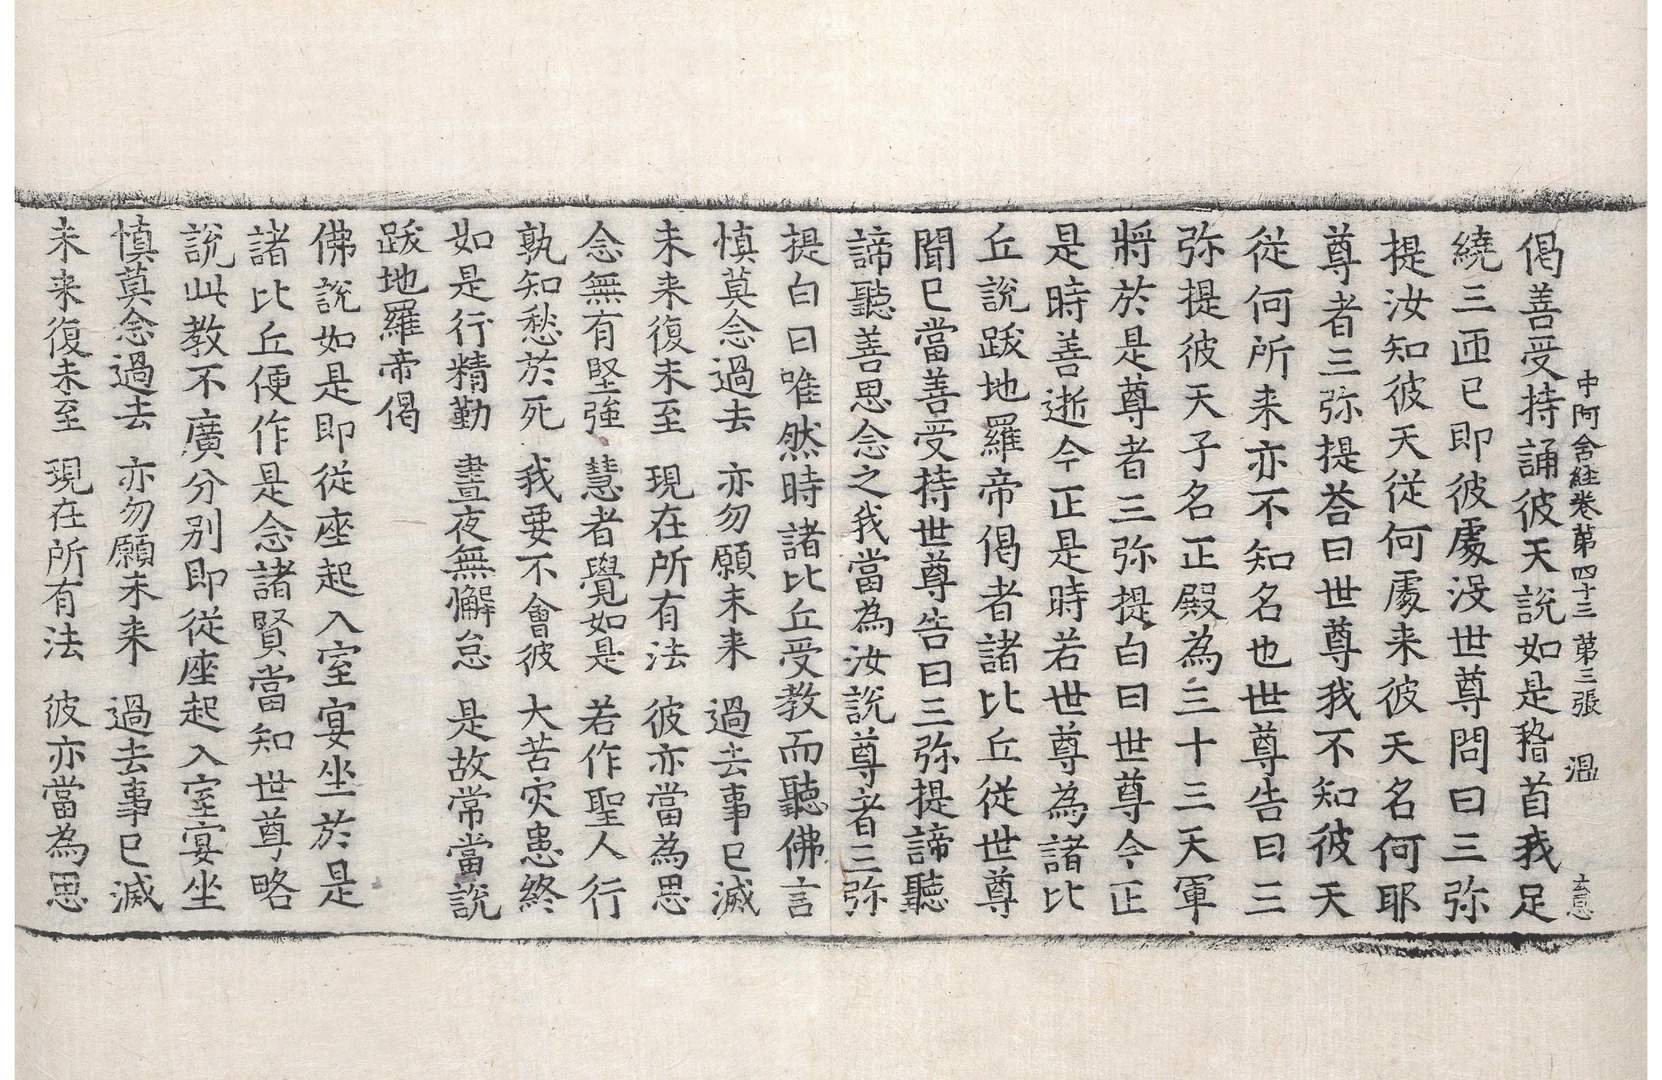 中阿含経卷第四十三 第三張 温 玄悥
偈善受持誦彼天說如是稽首我足
繞三匝已即彼處没世尊問曰三弥
提汝知彼天従何處来彼天名何耶
尊者三弥提荅曰世尊我不知彼天
従何所来亦不知名也世尊告曰三
弥提彼天子名正殿為三十三天軍
將於是尊者三弥提白曰世尊今正
是時善逝今正是時若世尊為諸比
丘說跋地羅帝偈者諸比丘従世尊
聞已當善受持世尊告曰三弥提諦聽
諦聽善思念之我當為汝說尊者三弥
提白曰唯然時諸比丘受教而聽佛言
慎莫念過去 亦勿願未来 過去事已滅
未来復未至 現在所有法 彼亦當為思
念無有堅強 慧者覺如是 若作聖人行
孰知愁於死 我要不會彼 大苦灾患終
如是行精勤 晝夜無懈怠 是故常當說
跋地羅帝偈
佛說如是即従座起入室宴坐於是
諸比丘便作是念諸賢當知世尊略
說此教不廣分別即従座起入室宴坐
慎莫念過去 亦勿願未来 過去事已滅
未来復未至 現在所有法 彼亦當為思